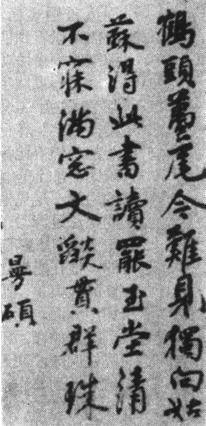 鶴頭蠆尾今難見獨向姑
蘇得此書讀罷玉堂清
不寐滿窓文燄貫群珠
曼碩